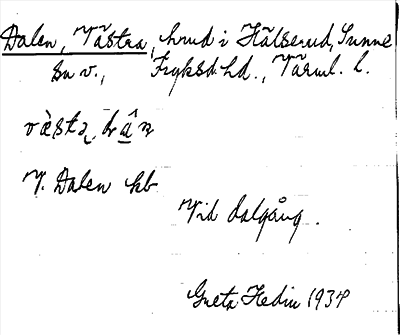 Dalen, Västra, hmd i Hälserud, Sunne
sn v., Fryksd. hd., Värml. l.
vȁstə dɑ̂n
V. Dalen kb
Vid dalgång.
Greta Hedin 1934